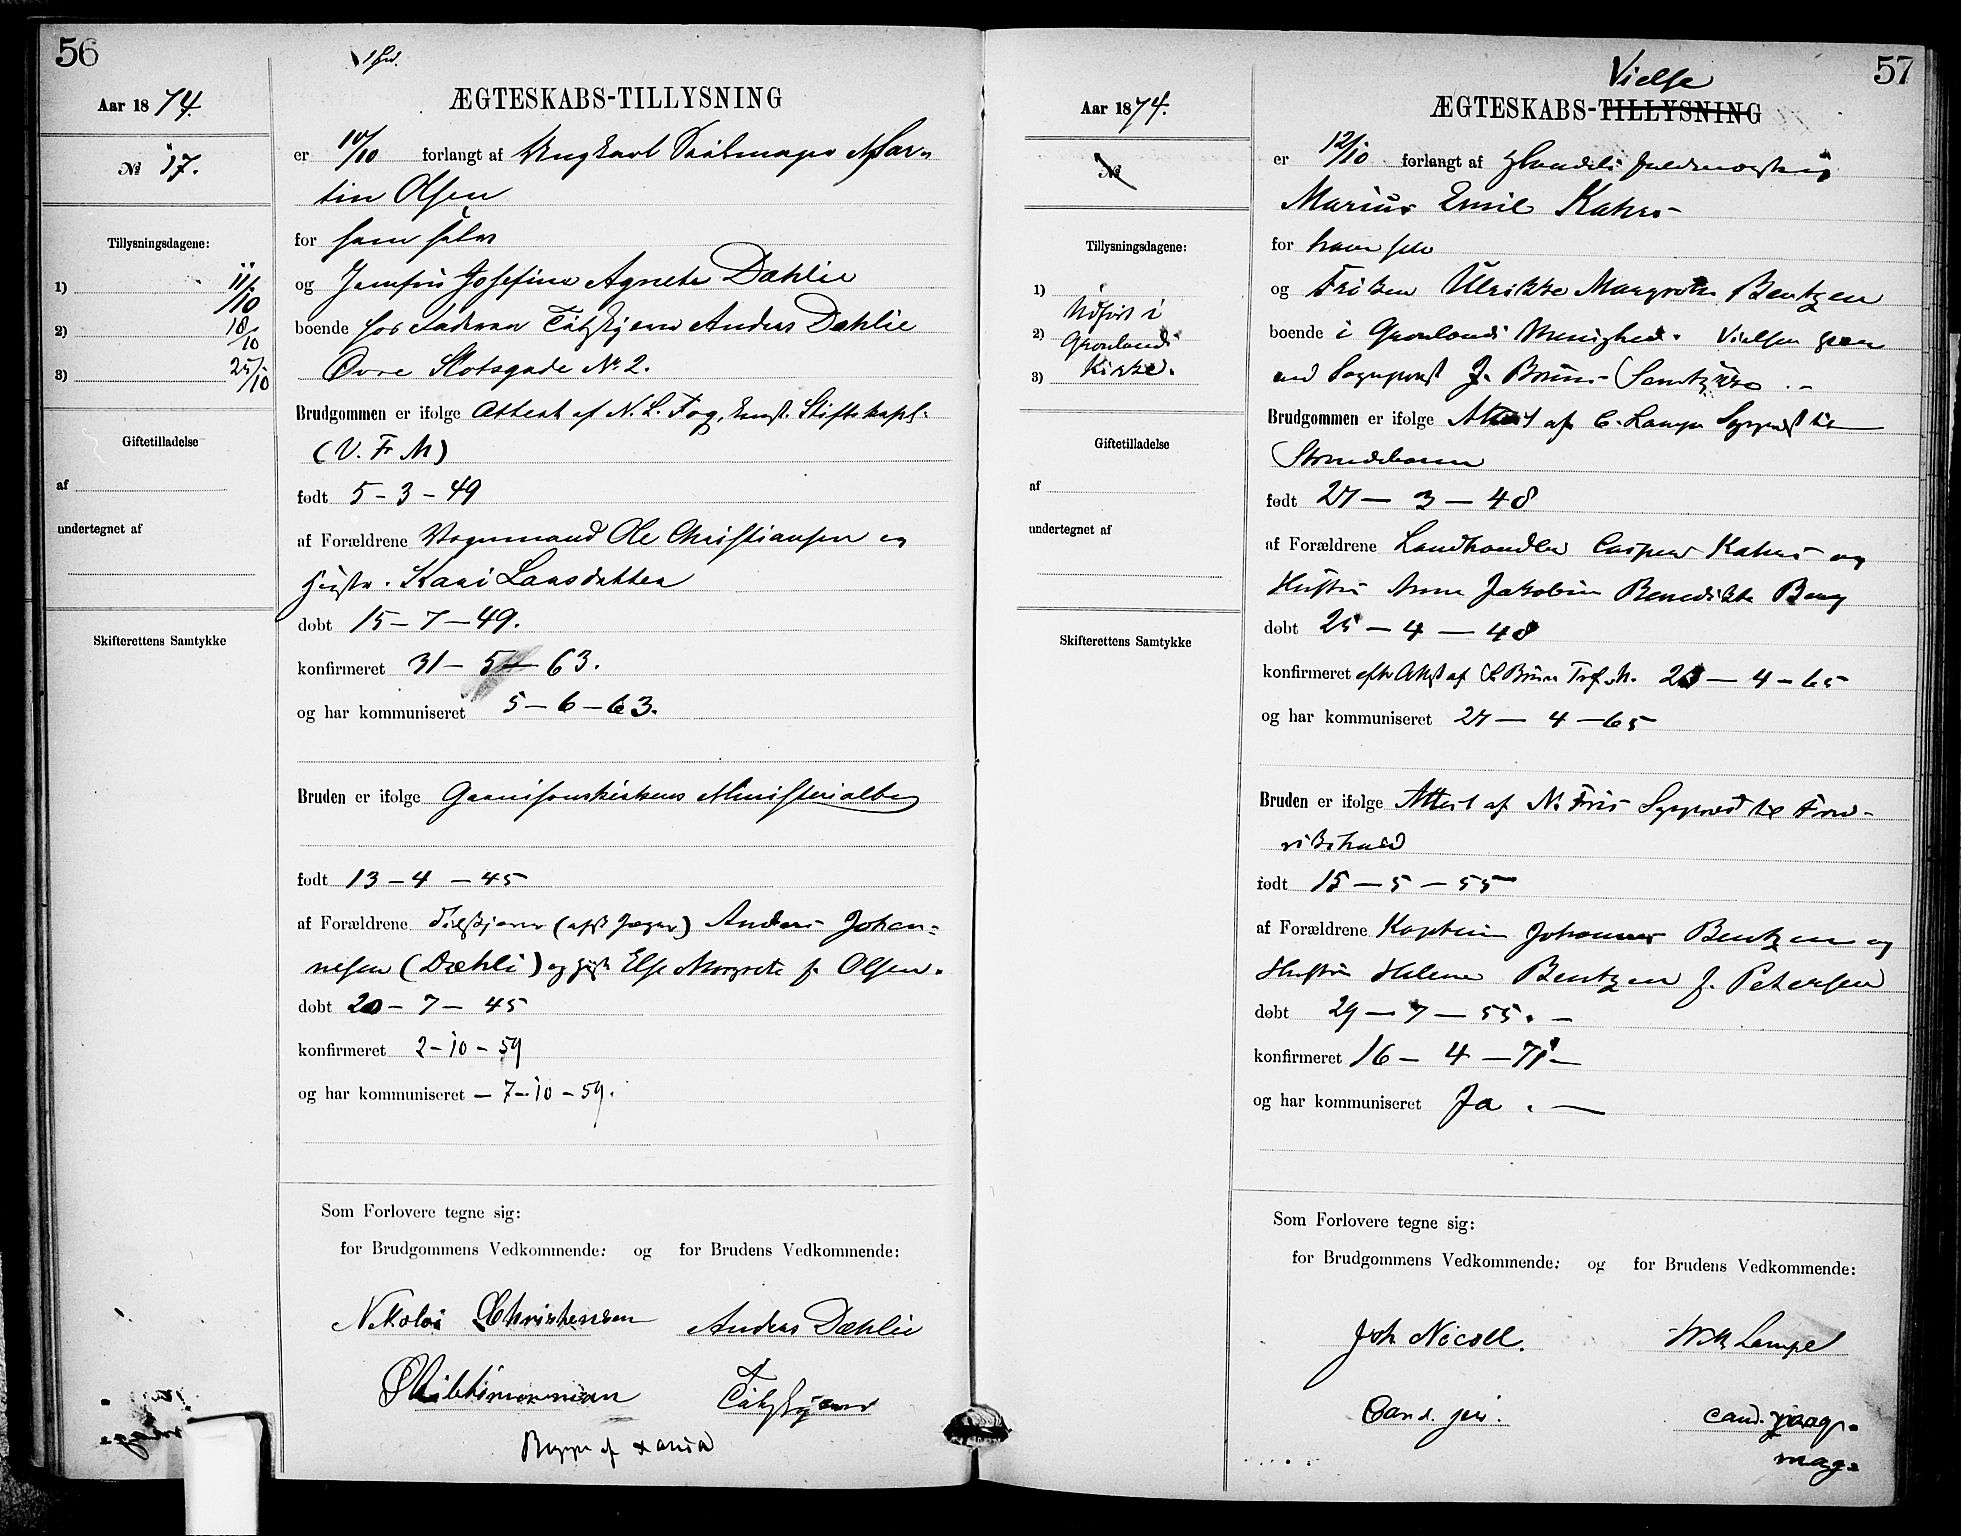 56
Aar 1874.
№ 17.
Tillysningsdagene:
1) 11/10
2) 18/10
3) 25/10
Giftetilladelse
af
undertegnet af
Skifterettens Samtykke
ÆGTESKABS-TILLYSNING
er 10/10 forlangt af Ungkarl Mar-
tin Olsen
for ham selv
og Jomfru Josefine Agnete Dæhlie
boende hos Faderen Anders Dæhlie
Øvre Slotsgade No 2.
Brudgommen er ifølge Attest af N. L. Fog, Stiftskapl.
(V. Fr M)
født 5-3-49
af Forældrene Vognmand Ole Christiansen og
Hustr. Kari Larsdatter
døbt 15-7-49.
konfirmeret 31-5-63.
og har kommuniseret 5-6-63.
Bruden er ifølge Garnisonskirkens Ministerialbog
født 13-4-45
af Forældrene Anders Johan-
nesen (Dæhli) og Else Margrete f. Olsen.
døbt 20-7-45
konfirmeret 2-10-59
og har kommuniseret - 7-10-59.
Som Forlovere tegne sig:
for Brudgommens Vedkommende: og for Brudens Vedkommende:
Nikolai Christensen Anders Dæhlie
Begge af
57
Aar 1874.
№
Tillysningsdagene:
1)
Udført i
2) Grønlands
Kirke.
3)
Giftetilladelse
af
undertegnet af
Skifterettens Samtykke
Vielse
ÆGTESKABS-TILLYSNING
er 12/10 forlangt af Handelsfuldmægtig
Marius Emil Kahrs
for ham selv
og Frøken Ulrikke Margrethe Bentzen
boende i Grønlands Menighed. Vielsen
ved Sogneprest J. Bruun
Brudgommen er ifølge Attest af C. Lange Sgprest til
Strandebarm
født 27-3-48
af Forældrene Landhandler Casper Kahrs og
Hustru Anne Jakobine Benedikte Berg
døbt 25-4-48
konfirmeret efter Attest af Bruun 23-4-65
og har kommuniseret 27-4-65
Bruden er ifølge Attest af N. Friis Sgprest til Fred-
rikshald
født 15-5-55
af Forældrene Kaptein Johannes Bentzen og
Hustru Helene Bentzen f. Petersen
døbt 29-7-55.
konfirmeret 16-4-71
og har kommuniseret Ja.
Som Forlovere tegne sig:
for Brudgommens Vedkommende: og for Brudens Vedkommende:
Joh Nicoll.
Cand. jur. cand.
mag.